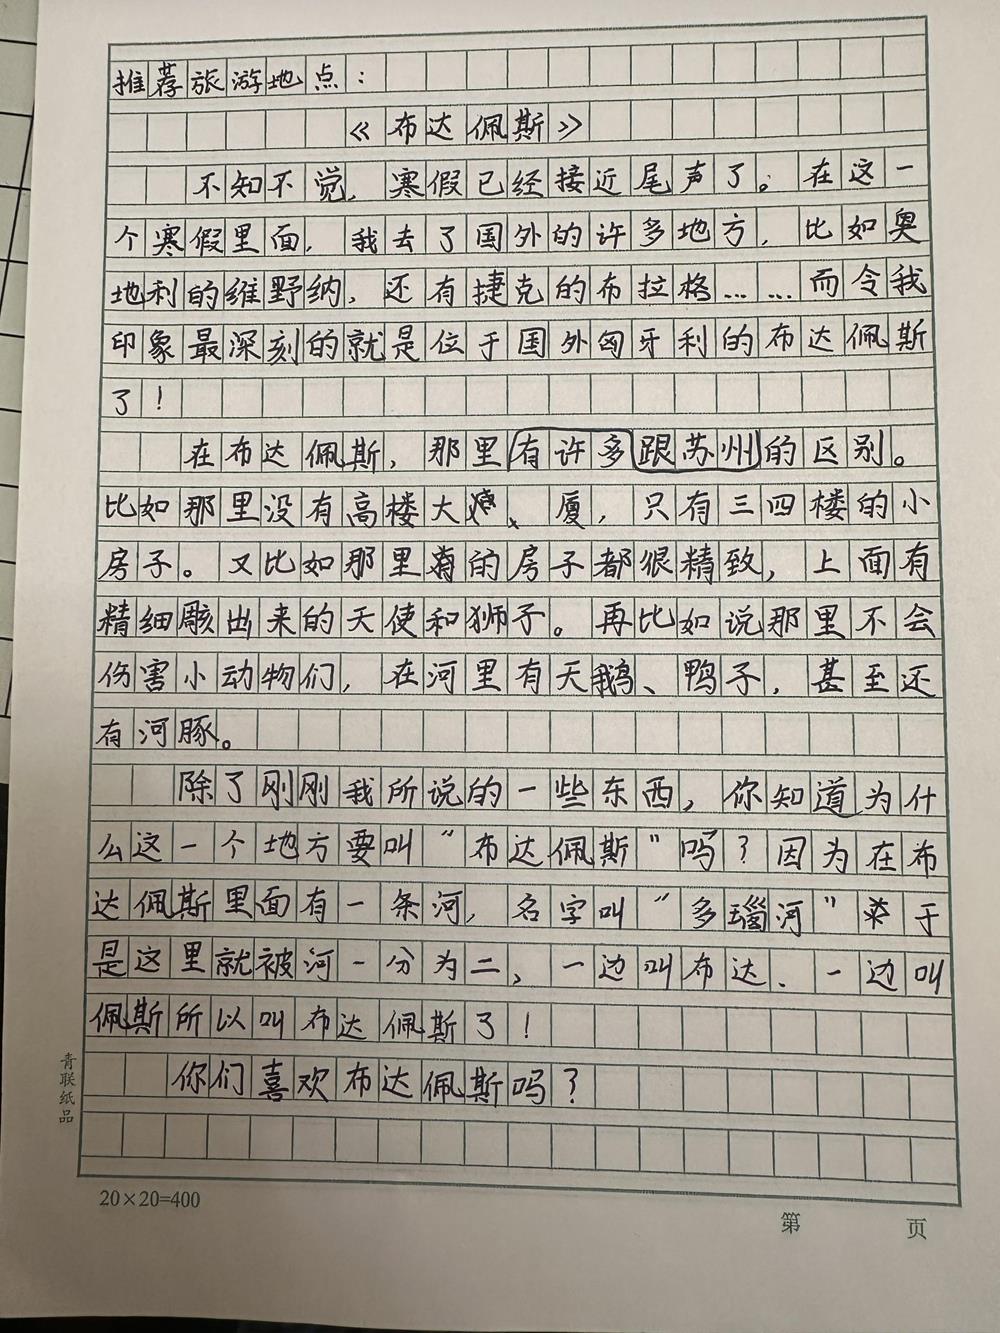 推荐旅游地点：
《布达佩斯》
不知不觉，寒假已经接近尾声了。在这一
个寒假里面，我去了国外的许多地方，比如奥
地利的维野纳，还有捷克的布拉格……而令我
印象最深刻的就是位于国外匈牙利的布达佩斯
了！
在布达佩斯，那里有许多跟苏州的区别。
比如那里没有高楼大、厦，只有三四楼的小
房子。又比如那里的房子都很精致，上面有
精细雕出来的天使和狮子。再比如说那里不会
伤害小动物们，在河里有天鹅、鸭子，甚至还
有河豚。
除了刚刚我所说的一些东西，你知道为什
么这一个地方要叫“布达佩斯”吗？因为在布
达佩斯里面有一条河，名字叫“多瑙河”于
是这里就被河一分为二，一边叫布达、一边叫
佩斯所以叫布达佩斯了！
你们喜欢布达佩斯吗？
青联纸品
20×20=400
第 页